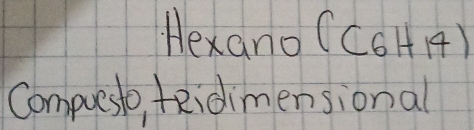 Hexano (C6H14)
Compuesto, tridimensional